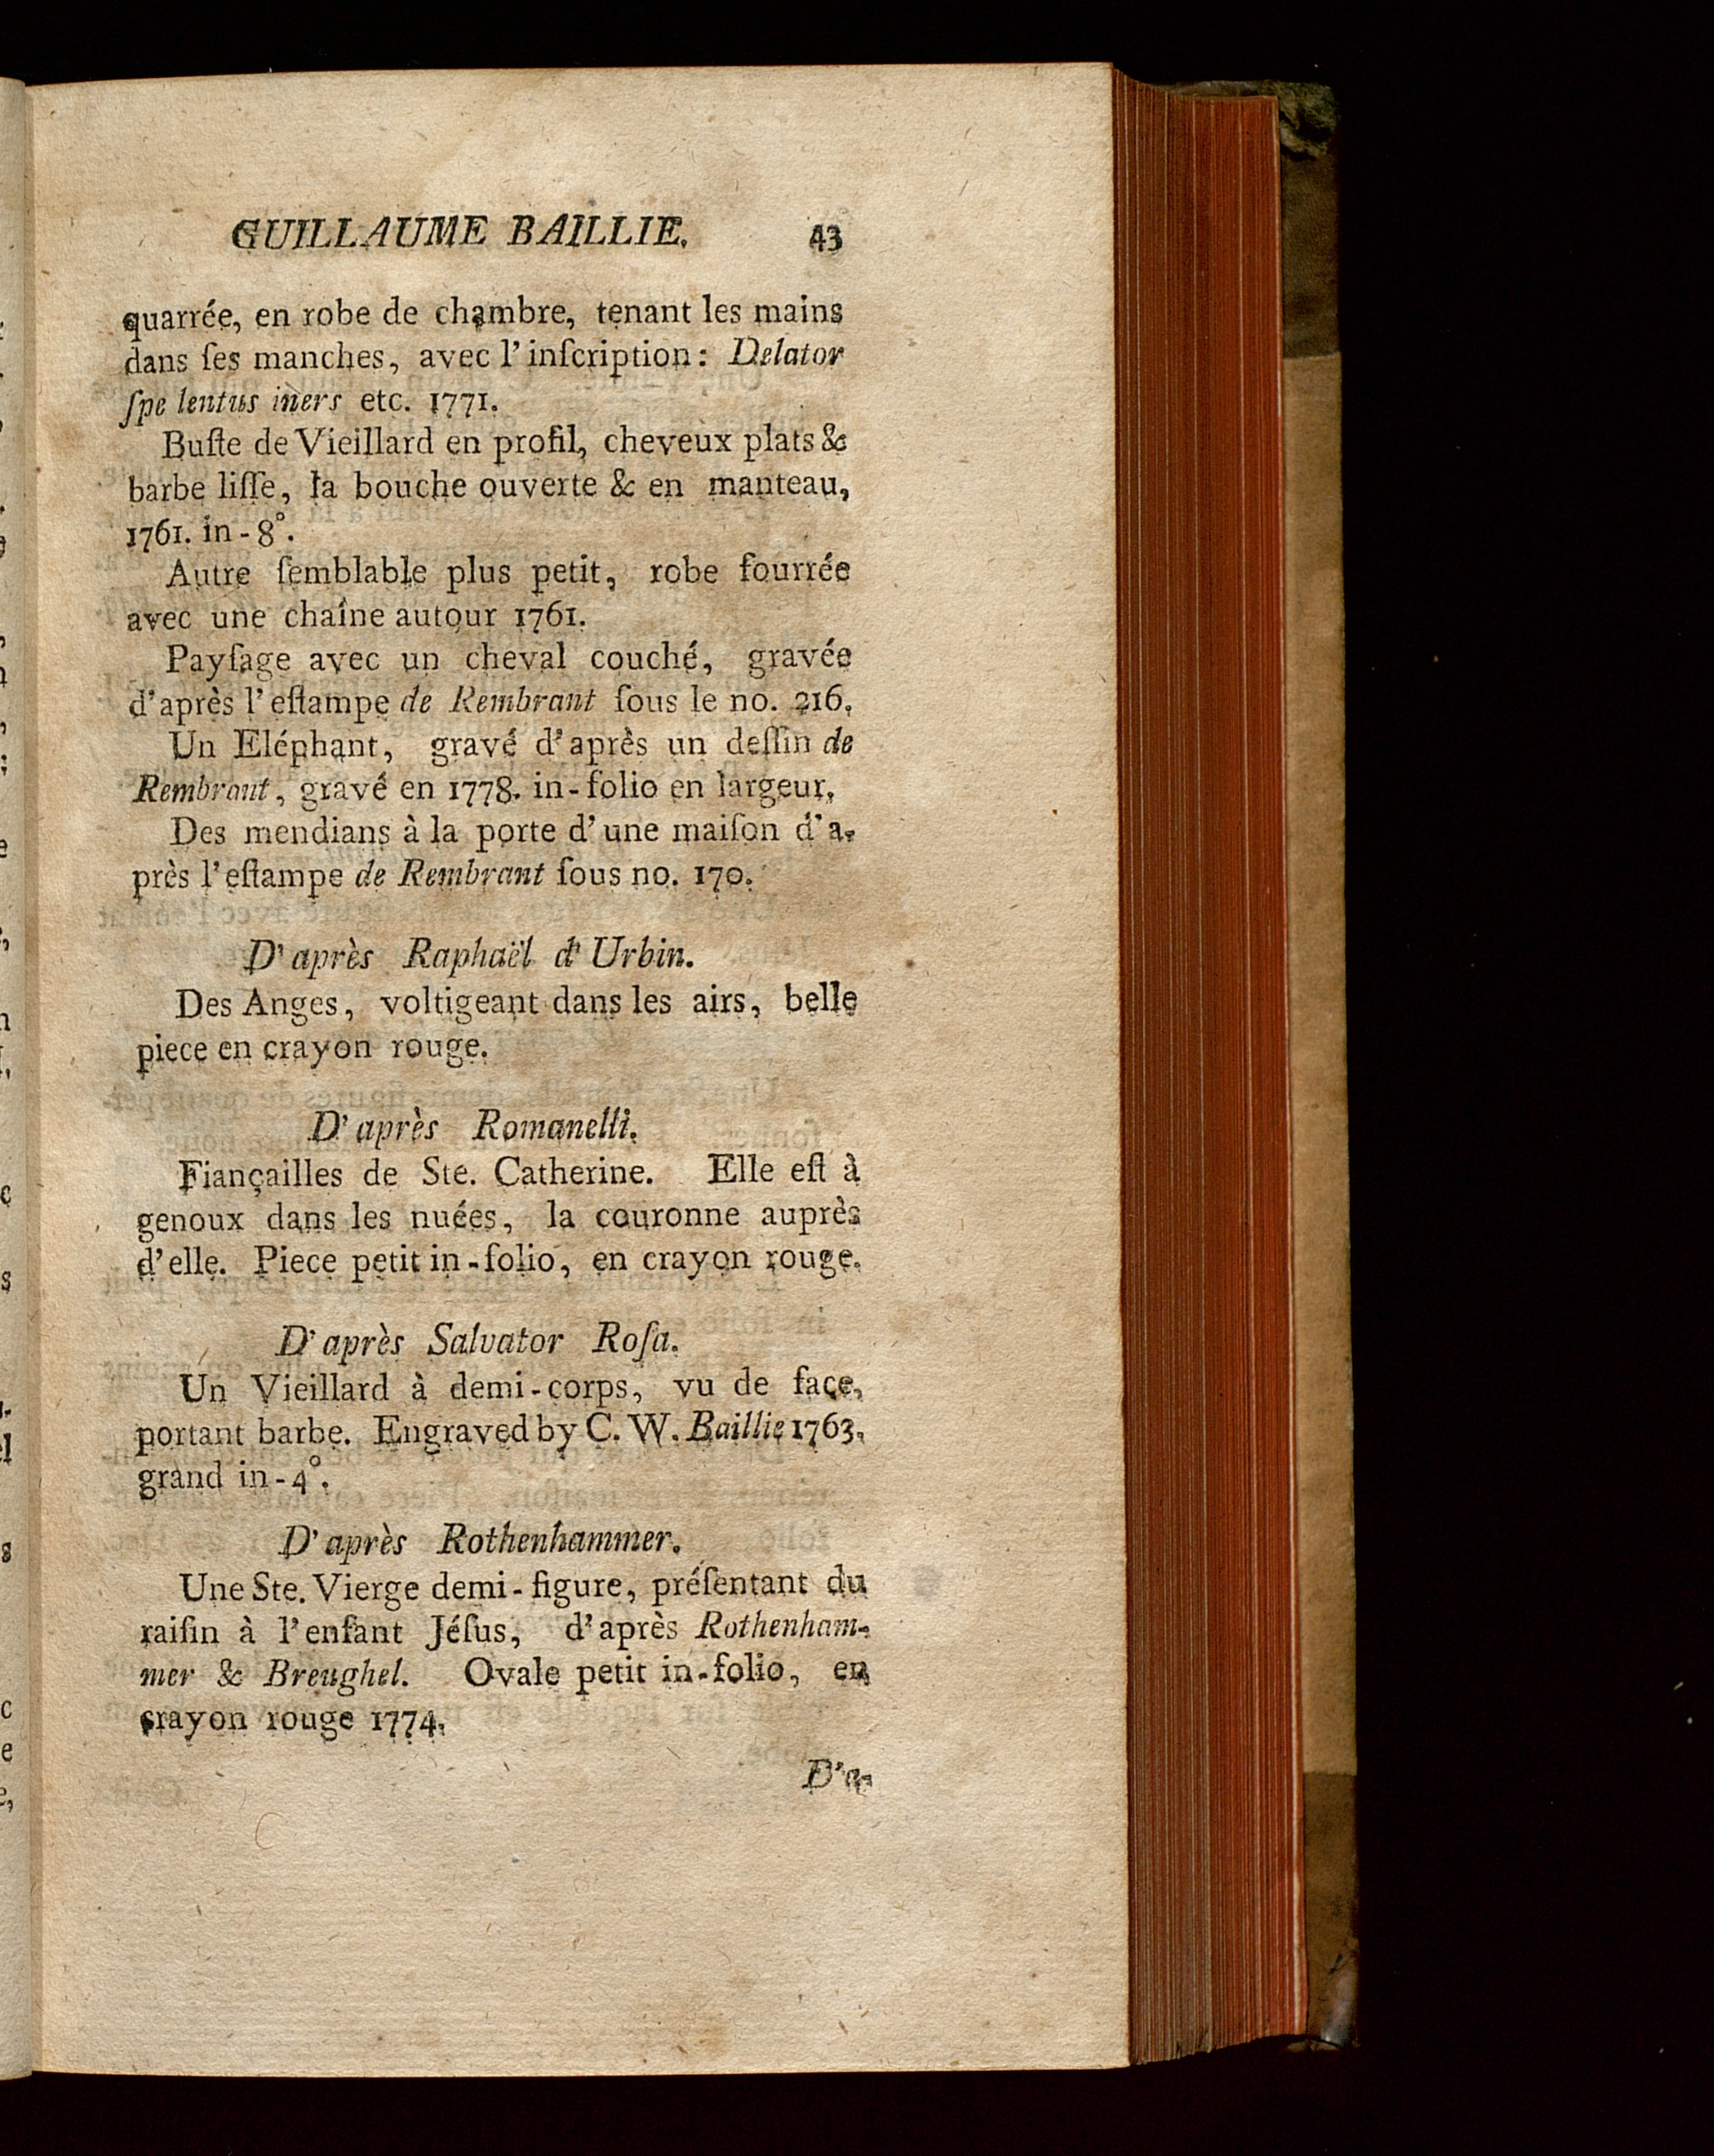 GUILLAUME BAILLIE. 43
quarrée, en robe de chambre, tenant les mains
dans ſes manches, avec l'inſcription: Delator
ſpe lentus iners etc. 1771.
Buſte de Vieillard en profil, cheveux plats &
barbe liſſe, la bouche ouverte & en manteau,
1761. in-8°.
Autre ſemblable plus petit, robe fourrée
avec une chaîne autour 1761.
Payſage avec un cheval couché, gravée
d'après l'eſtampe de Rembrant ſous le no. 216.
Un Eléphant, gravé d'après un deſſin de
Rembrant, gravé en 1778. in-folio en largeur.
Des mendians à la porte d'une maiſon d'a-
près l'eſtampe de Rembrant ſous no. 170.
D'après Raphaël d'Urbin.
Des Anges, voltigeant dans les airs, belle
piece en crayon rouge.
D'après Romanelli.
Fiançailles de Ste. Catherine. Elle eſt à
genoux dans les nuées, la couronne auprès
d'elle. Piece petit in-folio, en crayon rouge.
D'après Salvator Roſa.
Un Vieillard à demi-corps, vu de face,
portant barbe. Engraved by C. W. Baillie 1763.
grand in-4°.
D'après Rothenhammer.
Une Ste. Vierge demi-figure, préſentant du
raiſin à l'enfant Jéſus, d'après Rothenham-
mer & Breughel. Ovale petit in-folio, en
crayon rouge 1774.
D'a-